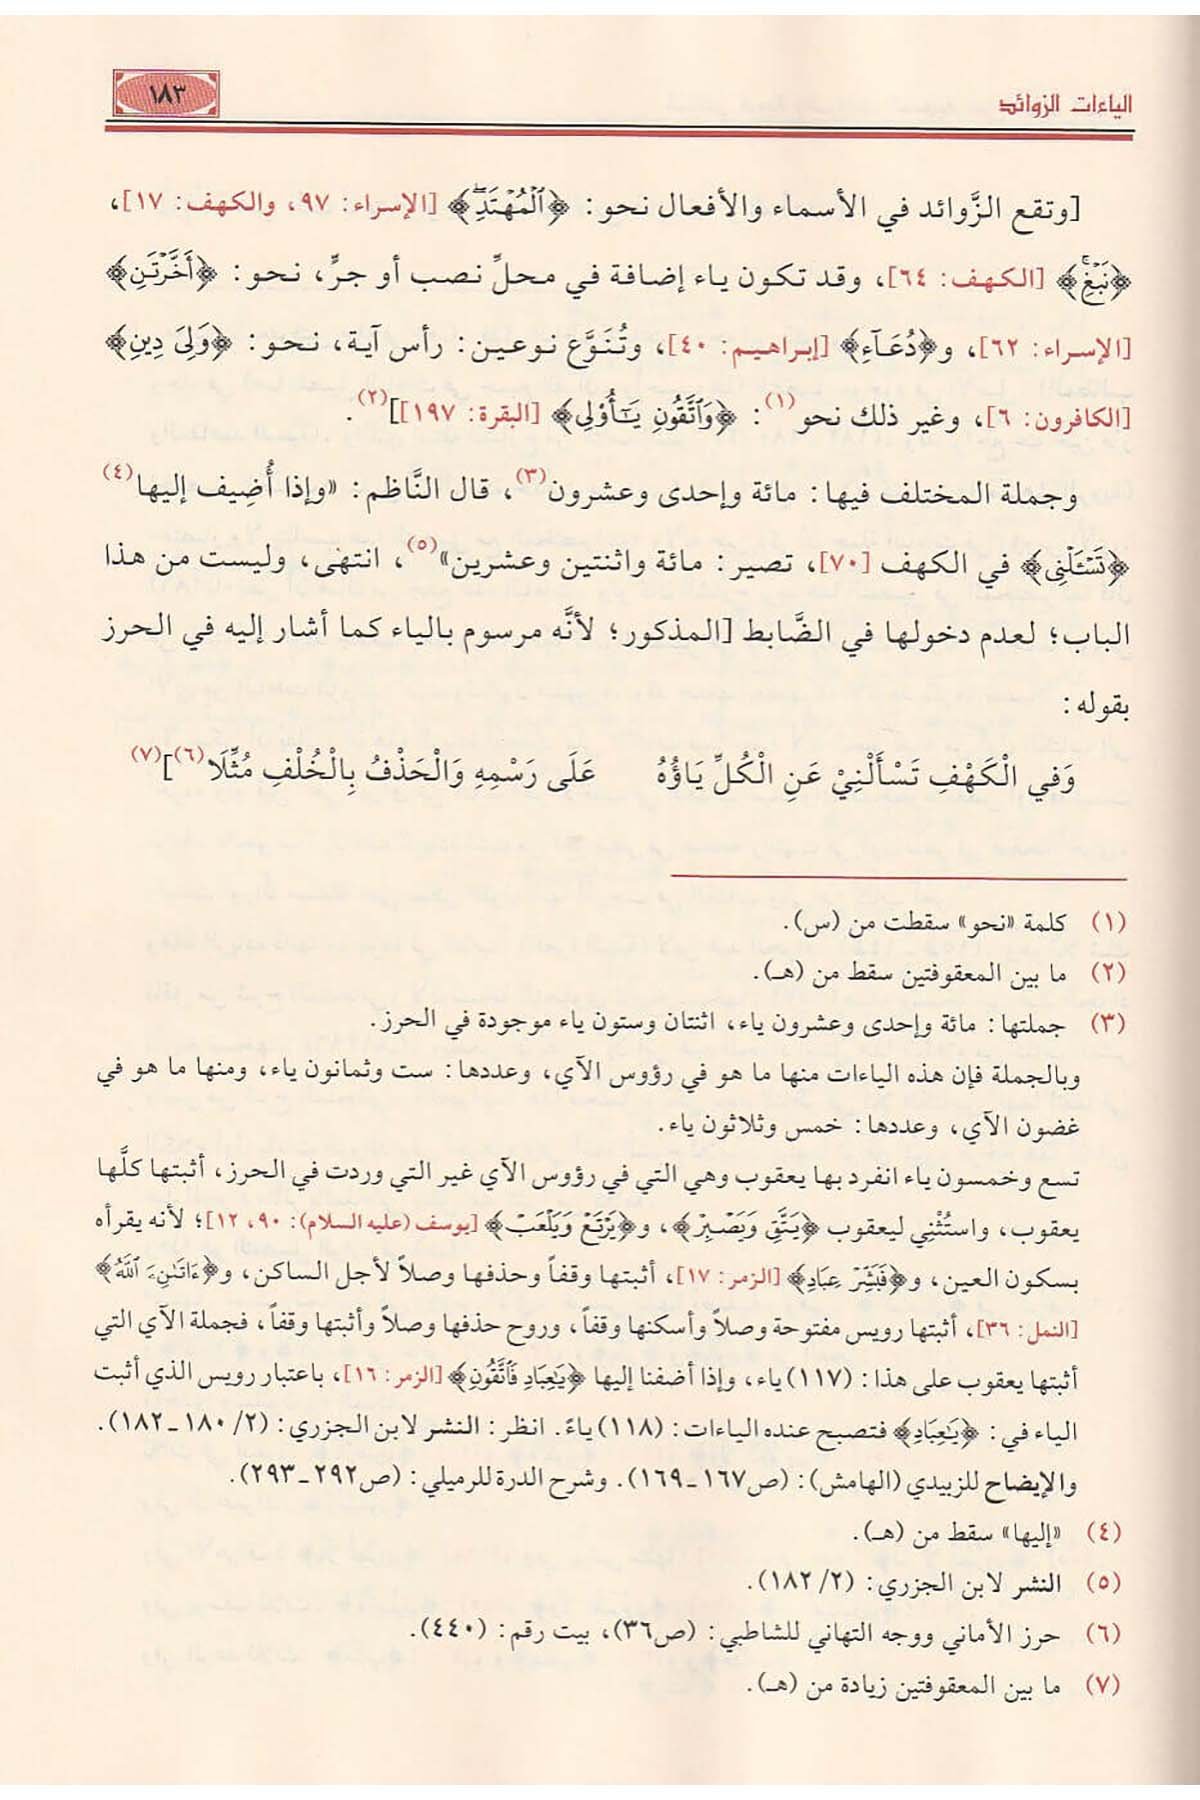 الياءات الزوائد
١٨٣
[وتقع الزَّوائد في الأسماء والأفعال نحو: ﴿ٱلْمُهْتَدِۖ﴾ [الإسراء: ٩٧، والكهف: ١٧]،
﴿نَبْغِۚ﴾ [الكهف: ٦٤]، وقد تكون ياء إضافة في محلِّ نصب أو جرٍّ، نحو: ﴿أَخَّرْتَنِ﴾
[الإسراء: ٦٢]، و﴿دُعَآءِ﴾ [إبراهيم: ٤٠]، وتُنَوَّع نوعين: رأس آية، نحو: ﴿وَلِيَ دِينِ﴾
[الكافرون: ٦]، وغير ذلك نحو(١): ﴿وَٱتَّقُونِ يَـٰٓأُوْلِى﴾ [البقرة: ١٩٧]](٢).
وجملة المختلف فيها: مائة وإحدى وعشرون(٣)، قال النَّاظم: «وإذا أُضِيف إليها(٤)
﴿تَسْـَٔلْنِى﴾ في الكهف [٧٠]، تصير: مائة واثنتين وعشرين»(٥)، انتهى، وليست من هذا
الباب؛ لعدم دخولها في الضَّابط [المذكور؛ لأنَّه مرسوم بالياء كما أشار إليه في الحرز
بقوله:
وَفي الْكَهْفِ تَسْأَلْنِيْ عَنِ الْكُلِّ يَاؤُهُ عَلَى رَسْمِهِ وَالْحَذْفُ بِالْخُلْفِ مُثِّلَا(٦)](٧)
(١) كلمة «نحو» سقطت من (س).
(٢) ما بين المعقوفتين سقط من (هـ).
(٣) جملتها: مائة وإحدى وعشرون ياء، اثنتان وستون ياء موجودة في الحرز.
وبالجملة فإن هذه الياءات منها ما هو في رؤوس الآي، وعددها: ست وثمانون ياء، ومنها ما هو في
غضون الآي، وعددها: خمس وثلاثون ياء.
تسع وخمسون ياء انفرد بها يعقوب وهي التي في رؤوس الآي غير التي وردت في الحرز، أثبتها كلَّها
يعقوب، واستُثْنِي ليعقوب ﴿يَتَّقِ وَيَصْبِرْ﴾، و﴿يَرْتَعْ وَيَلْعَبْ﴾ [يوسف (عليه السلام): ٩٠، ١٢]؛ لأنه يقرأه
بسكون العين، و﴿فَبَشِّرْ عِبَادِ﴾ [الزمر: ١٧]، أثبتها وقفاً وحذفها وصلاً لأجل الساكن، و﴿ءَاتَىٰنِۦَ ٱللَّهُ﴾
[النمل: ٣٦]، أثبتها رويس مفتوحة وصلاً وأسكنها وقفاً، وروح حذفها وصلاً وأثبتها وقفاً، فجملة الآي التي
أثبتها يعقوب على هذا: (١١٧) ياء، وإذا أضفنا إليها ﴿يَـٰعِبَادِ فَٱتَّقُونِ﴾ [الزمر: ١٦]، باعتبار رويس الذي أثبت
الياء في: ﴿يَـٰعِبَادِ﴾ فتصبح عنده الياءات: (١١٨) ياءً. انظر: النشر لابن الجزري: (٢/ ١٨٠ ـ ١٨٢).
والإيضاح للزبيدي (الهامش): (ص١٦٧ ـ ١٦٩). وشرح الدرة للرميلي: (ص٢٩٢ ـ ٢٩٣).
(٤) «إليها» سقط من (هـ).
(٥) النشر لابن الجزري: (٢/ ١٨٢).
(٦) حرز الأماني ووجه التهاني للشاطبي: (ص٣٦)، بيت رقم: (٤٤٠).
(٧) ما بين المعقوفتين زيادة من (هـ).